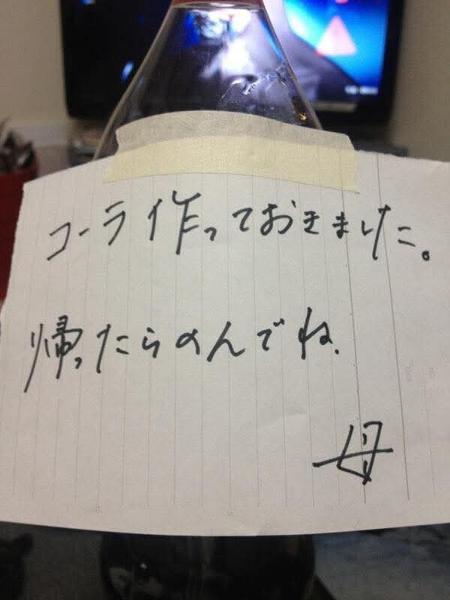 コーラ作っておきました。
帰ったらのんでね。
母